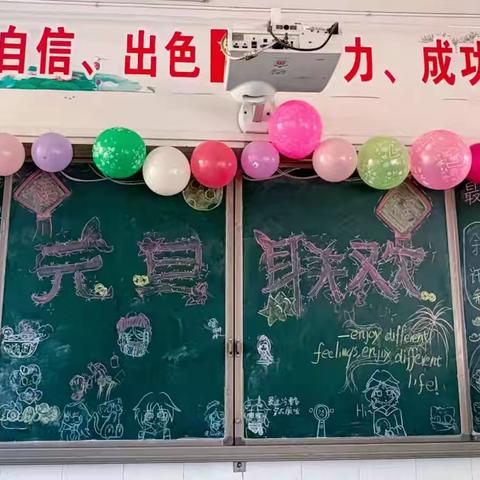 自信、出色 力、成功
元旦联欢
最
—enjoy different
feelings, enjoy different
life!
Hi